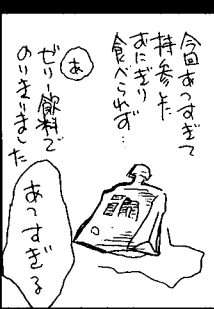 今回あつすぎて
持参した
おにぎり
食べられず…
あ
ゼリー飲料で
のりきりました
あつすぎる